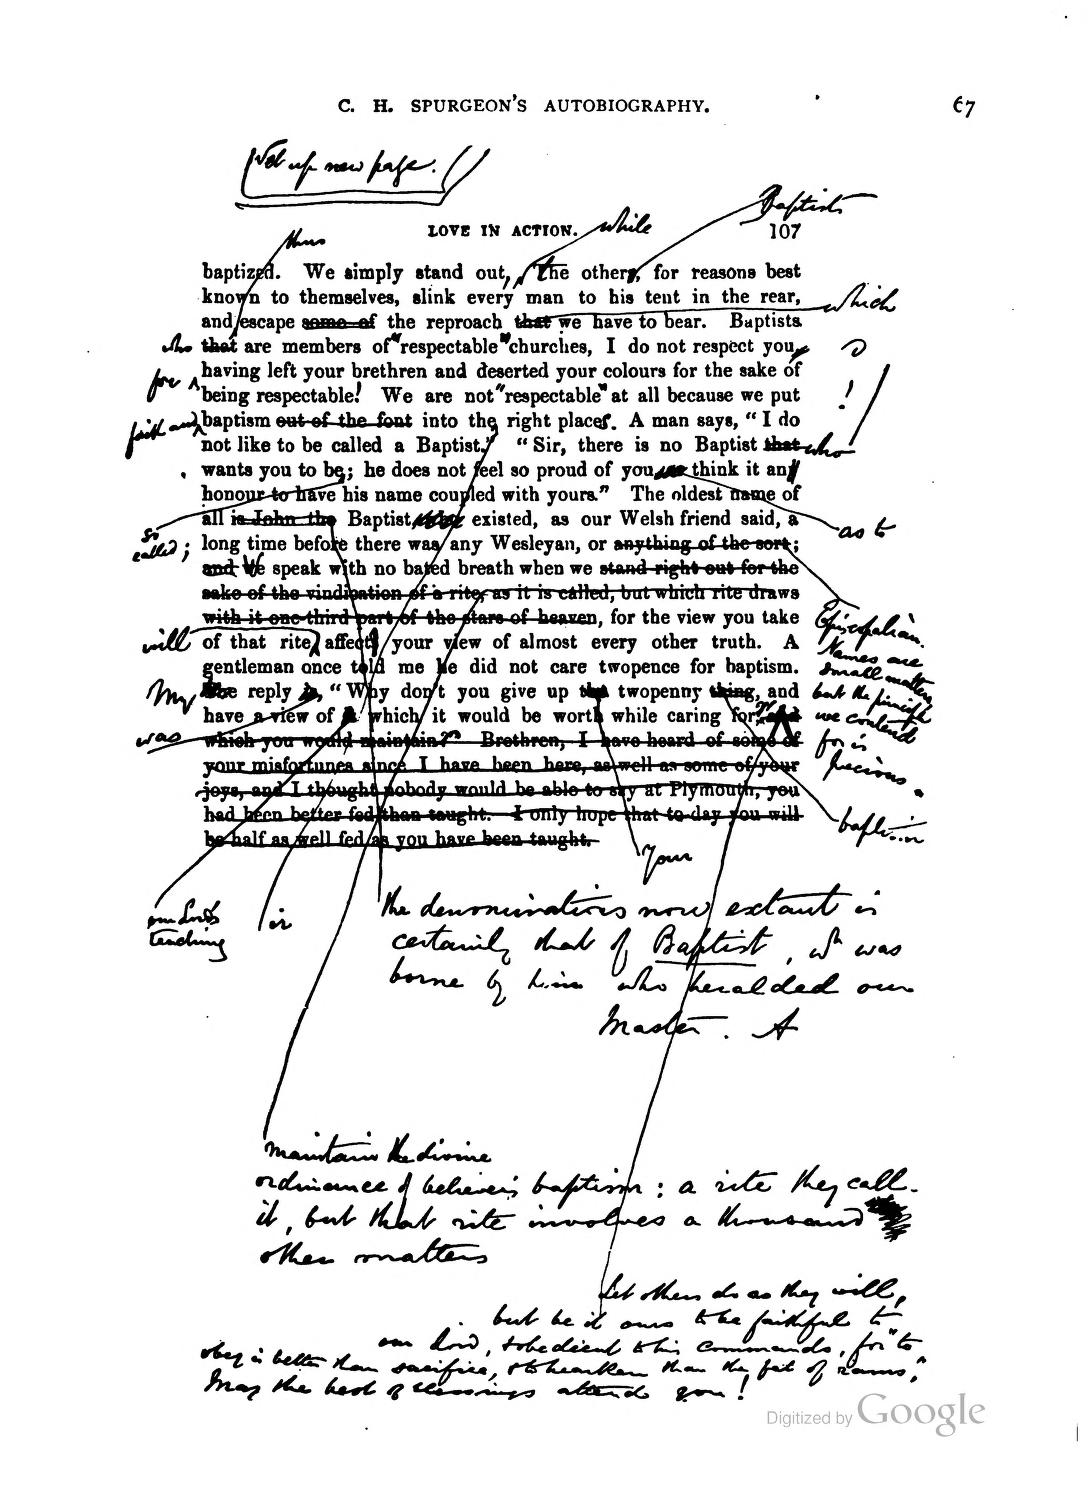 C. H. SPURGEON'S AUTOBIOGRAPHY. 67
Set up new page.
Baptists
while
LOVE IN ACTION. 107
thus
baptized. We simply stand out, the others, for reasons best
known to themselves, slink every man to his tent in the rear,
which
and escape some of the reproach that we have to bear. Baptists
who that are members of "respectable" churches, I do not respect you,
having left your brethren and deserted your colours for the sake of
for being respectable! We are not "respectable" at all because we put
faith and baptism out of the font into the right places. A man says, "I do
not like to be called a Baptist." "Sir, there is no Baptist that who
wants you to be; he does not feel so proud of you as to think it any
honour to have his name coupled with yours." The oldest name of
all is John the Baptist existed, as our Welsh friend said, a
so called; long time before there was any Wesleyan, or anything of the sort;
and We speak with no bated breath when we stand right out for the
sake of the vindication of a rite, as it is called; but which rite draws
with it one-third part of the stars of heaven, for the view you take
Episcopalian.
will of that rite, affects your view of almost every other truth. A
Names are
small matters
gentleman once told me he did not care twopence for baptism.
My The reply is, "Why don't you give up the twopenny thing, and
but the principle
have a view of it which it would be worth while caring for, and
we contend
was which you would maintain?" Brethren, I have heard of some of
for is
your misfortunes since I have been here, as well as some of your
precious.
joys, and I thought nobody would be able to say at Plymouth, you
had been better fed than taught. I only hope that to-day you will
baptism
be half as well fed as you have been taught.
Your
our Lord's
teaching
is
the denominations now extant is
certainly that of Baptist, wh was
borne by him who heralded our
Master. A
maintain the divine
ordinance of believer's baptism: a rite they call
it, but that rite involves a thousand
other matters
Let others do as they will,
but be it ours to be faithful to
our Lord, & obedient to his commands, for "to
obey is better than sacrifice, & to hearken than the fat of rams."
May the best of blessings attend you!
Digitized by Google